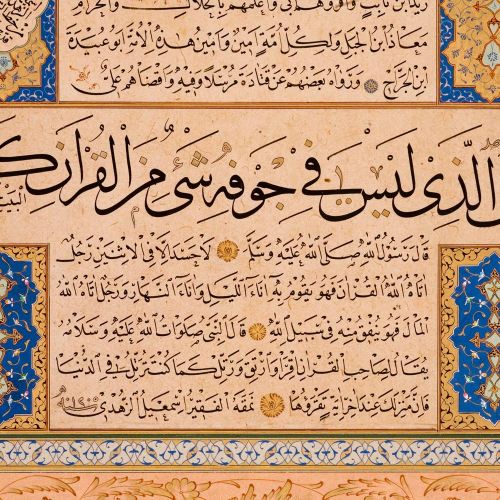 زيد ابن ثابت واقرؤهم ابي واعلمهم بالحلال والحرام
معاذ ابن الجبل ولكل امة امين وامين هذه الامة ابو عبيدة
ابن الجراح وزواه بعضهم عن قتادة مرسلا وفيه واقضاهم علي
الذي ليس في جوفه شئ من القران ك
البيت
قال رسول الله صلى الله عليه وسلم لا حسد الا في الاثنين رجل
اتاه الله القران فهو يقوم به آناء الليل واناء النهار ورجل اتاه الله
المال فهو ينفق منه في سبيل الله قال النبي صلوات الله عليه وسلامه
يقال لصاحب القران اقرا وارتق ورتل كما كنت ترتل في الدنيا
فان منزلك عند اخر اية تقرؤها نمقه الفقير اسمعيل الزهدي